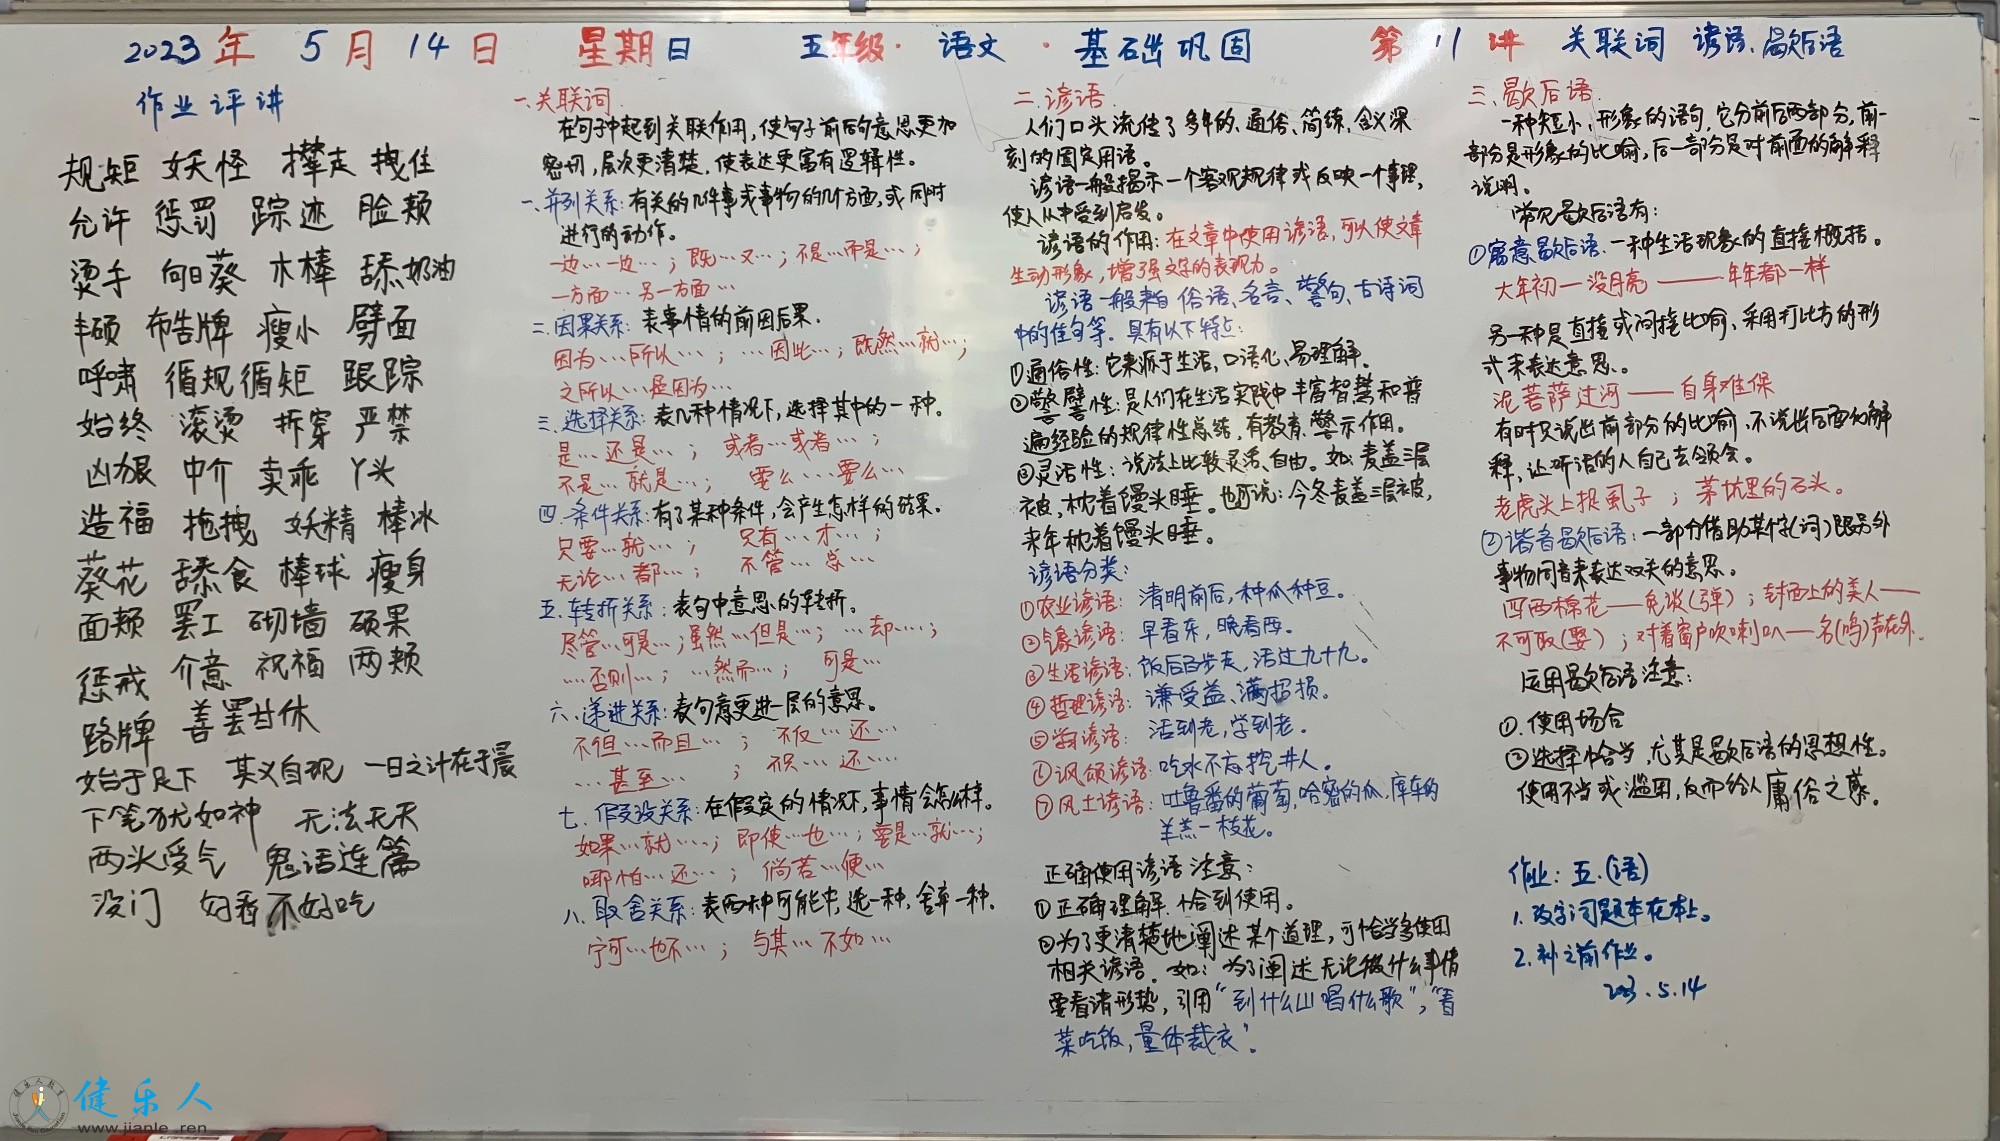 2023年 5月14日 星期日 五年级·语文·基础巩固 第11讲 关联词 谚语、歇后语
作业评讲
规矩 妖怪 撵走 拽住
允许 惩罚 踪迹 脸颊
烫手 向日葵 木棒 舔奶油
丰硕 布告牌 瘦小 劈面
呼啸 循规循矩 跟踪
始终 滚烫 拆穿 严禁
凶狠 中介 卖乖 丫头
造福 拖拽 妖精 棒冰
葵花 舔食 棒球 瘦身
面颊 罢工 砌墙 硕果
惩戒 介意 祝福 两颊
路牌 善罢甘休
始于足下 其义自现 一日之计在于晨
下笔犹如神 无法无天
两头受气 鬼话连篇
没门 好看不好吃
一、关联词
在句子中起到关联作用，使句子前后句意思更加
密切，层次更清楚，使表达更富有逻辑性。
一、并列关系：有关的几件事或事物的几个方面，或同时
进行的动作。
一边…一边…；既…又…；不是…而是…；
一方面…另一方面…
二、因果关系：表事情的前因后果．
因为…所以…；…因此…；既然…就…；
之所以…是因为…
三、选择关系：表几种情况下，选择其中的一种。
是…还是…；或者…或者…；
不是…就是…；要么…要么…
四、条件关系：有了某种条件，会产生怎样的结果．
只要…就…；只有…才…；
无论…都…；不管…总…
五、转折关系：表句中意思的转折。
尽管…可是…；虽然…但是…；…却…；
…否则…；…然而…；可是…
六、递进关系：表句意更进一层的意思。
不但…而且…；不仅…还…
…甚至…；不只…还…
七、假设关系：在假定的情况下，事情会怎么样。
如果…就…；即使…也…；要是…就…；
哪怕…还…；倘若…便…
八、取舍关系：表两种可能中，选一种，舍弃一种．
宁可…也不…；与其…不如…
二、谚语
人们口头流传了多年的、通俗、简练、含义深
刻的固定用语。
谚语一般揭示一个客观规律或反映一个事理，
使人从中受到启发。
谚语的作用：在文章中使用谚语，可以使文章
生动形象，增强文字的表现力。
谚语一般来自俗语、名言、警句、古诗词
中的佳句等．具有以下特点：
①通俗性：它来源于生活，口语化、易理解．
②警譬性：是人们在生活实践中丰富智慧和普
遍经验的规律性总结，有教育、警示作用。
③灵活性：说法上比较灵活、自由。如：麦盖三层
被，枕着馒头睡。也可说：今冬麦盖三层被，
来年枕着馒头睡。
谚语分类：
①农业谚语：清明前后，种瓜种豆。
②气象谚语：早看东，晚看西。
③生活谚语：饭后百步走，活过九十九。
④哲理谚语：谦受益、满招损。
⑤学习谚语：活到老，学到老。
⑥讽颂谚语：吃水不忘挖井人。
⑦风土谚语：吐鲁番的葡萄，哈密的瓜，库车的
羊羔一枝花。
正确使用谚语注意：
①正确理解．恰到使用。
②为了更清楚地阐述某个道理，可恰当多使用
相关谚语．如：为了阐述无论做什么事情
要看清形势，引用“到什么山唱什么歌”，“看
菜吃饭，量体裁衣”．
三、歇后语
一种短小、形象的语句，它分前后两部分，前一
部分是形象的比喻，后一部分是对前面的解释
说明。
常见歇后语有：
①寓意歇后语．一种生活现象的直接概括。
大年初一没月亮——年年都一样
另一种是直接或间接比喻、采用打比方的形
式来表达意思。
泥菩萨过河——自身难保
有时只说出前部分的比喻，不说出后面的解
释，让听话的人自己去领会。
老虎头上捉虱子；茅坑里的石头。
②谐音歇后语：一部分借助某个字(词)跟另外
事物同音来表达双关的意思。
四两棉花——免谈(弹)；封面上的美人——
不可取(娶)；对着窗户吹喇叭——名(鸣)声在外．
运用歇后语注意：
①．使用场合
②选择恰当，尤其是歇后语的思想性。
使用不当或滥用，反而给人庸俗之感。
作业：五．(语)
1.改字词题本在本上。
2.补之前作业。
2023.5.14
健乐人
www.jianle.ren